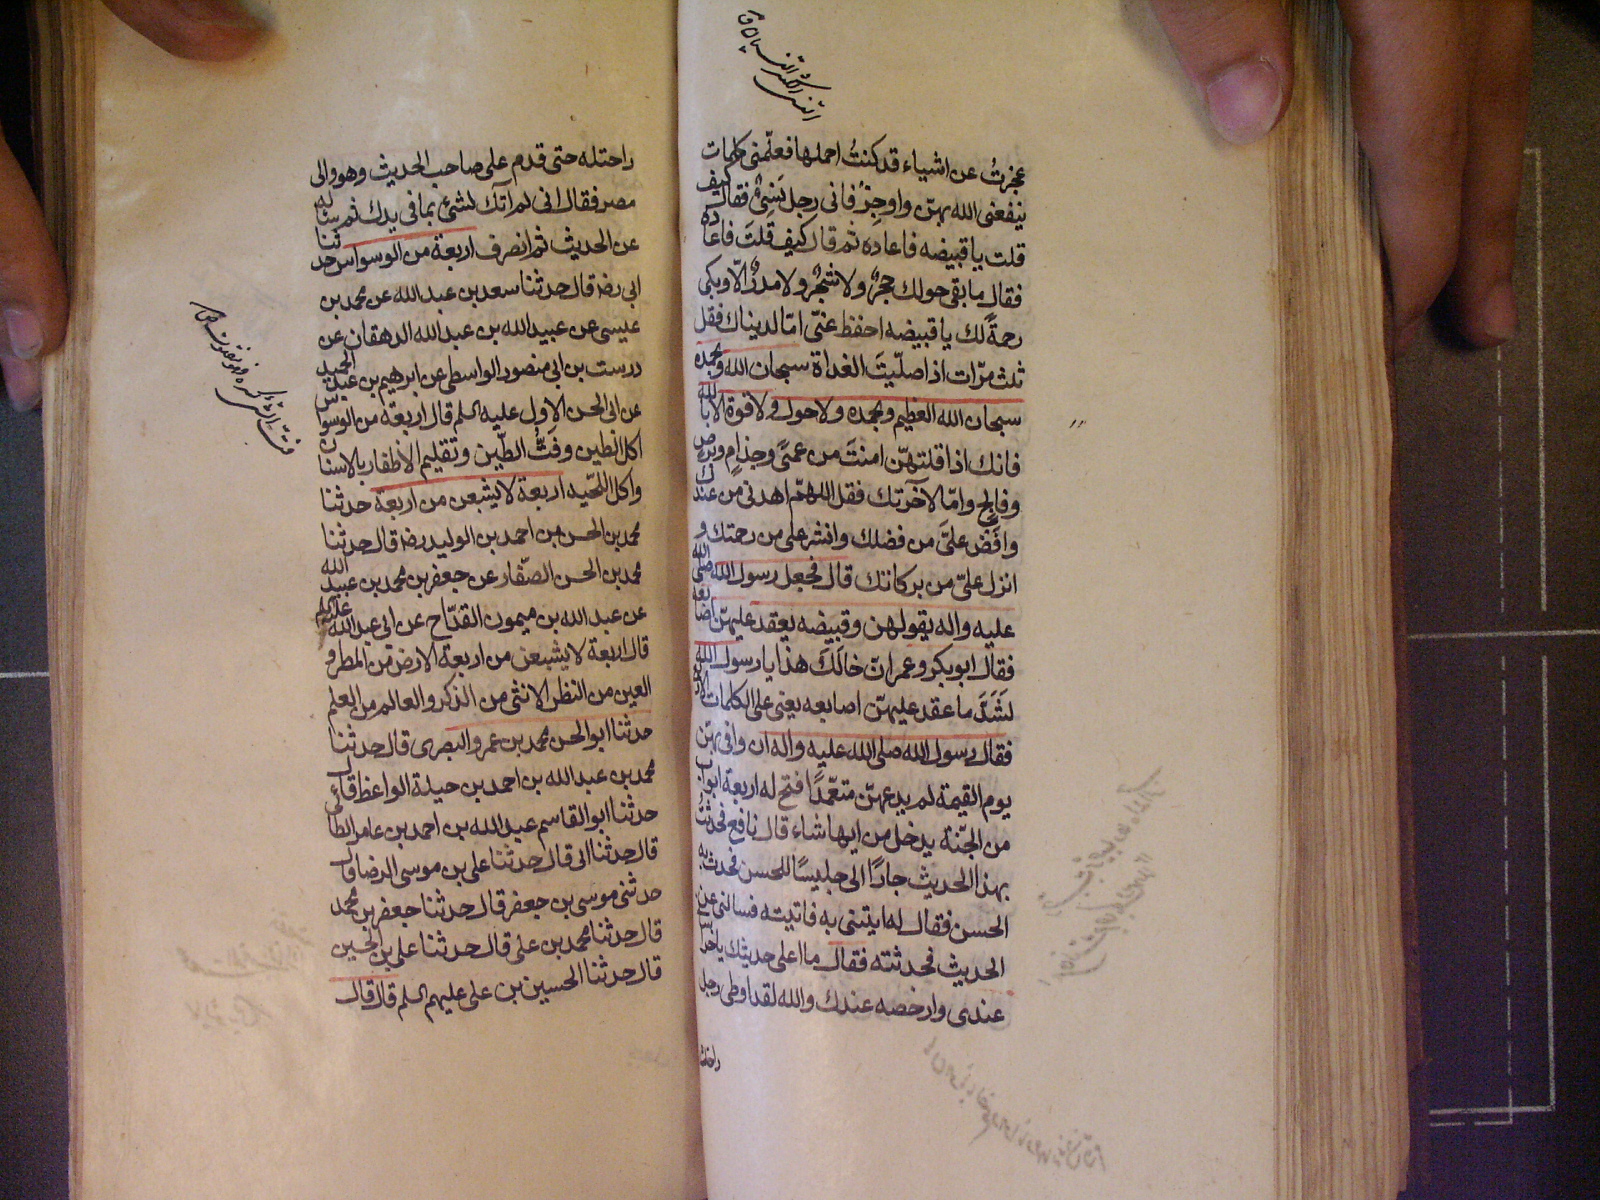 عجزتُ عن اشياء قد كنتُ احملها فعلّمنى كلمات
ينفعنى الله بهنّ واوجِزْ فانى رجل نَسِىٌّ فقال كيف
قلت يا قبيضه فاعاده ثم قال كيف قلتَ فاعاده
فقال ما بقى حولك حجرٌ ولا شجرٌ ولا مدرٌ الّا وبكى
رحمةً لك يا قبيضه احفظ عنّى امّا لدنياك فقل
ثلث مرّات اذا صلّيتَ الغداة سبحان الله وبحمده
سبحان الله العظيم وبحمده ولا حول ولا قوة الا بالله
فانك اذا قلتهنّ امنتَ من عمىً وجذامٍ وبرص
وفالجٍ وامّا لآخرتك فقل اللهمّ اهدنى من عندك
وافض علىّ من فضلك وانشر على من رحمتك و
انزل علىّ من بركاتك قال فجعل رسول الله صلى الله
عليه واله يقولهن وقبيضه يعقد عليهنّ اصابعه
فقال ابو بكر وعمر انّ خالَكَ هذا يا رسول الله
لَشَدَّ ما عقد عليهنّ اصابعه يعنى على الكلمات الاربع
فقال رسول الله صلى الله عليه واله ان وافى بهنّ
يوم القيمة لم يدعهنّ متعمّدًا فتح له اربعة ابواب
من الجنّة يدخل من ايها شاء قال نافع فحدثتُ
بهذا الحديث جارًا لى جليسًا للحسن فحدث به
الحسن فقال له ايتنى به فاتيته فسالنى عن
الحديث فحدثته فقال ما اغلى حديثك يا خراسانى
عندى وارخصه عندك والله لقد اوطى رجل
راحلته
راحلته حتى قدم على صاحب الحديث وهو والى
مصر فقال انى لم آتك لشئ بما فى يدك ثم ساله
عن الحديث ثم انصرف اربعة من الوسواس حدثنا
ابى رضه قال حدثنا سعد بن عبد الله عن محمد بن
عيسى عن عبيد الله بن عبد الله الدهقان عن
درست بن ابى منصور الواسطى عن ابرهيم بن عبد الحميد
عن ابى الحسن الاول عليه السلم قال اربعة من الوسواس
اكل الطين وفَتُّ الطّين وتقليم الأظفار بالاسنان
واكل اللّحيه اربعة لا يشبعن من اربعة حدثنا
محمد بن الحسن بن احمد بن الوليد رضه قال حدثنا
محمد بن الحسن الصّفار عن جعفر بن محمد بن عبيد الله
عن عبد الله بن ميمون القدّاح عن ابى عبد الله عليه السلم
قال اربعة لا يشبعن من اربعة الارض من المطر و
العين من النظر الانثى من الذكر والعالم من العلم
حدثنا ابو الحسن محمد بن عمرو البصرى قال حدثنا
محمد بن عبد الله بن احمد بن جبلة الواعظ قال
حدثنا ابو القاسم عبد الله بن احمد بن عامر الطائى
قال حدثنا ابى قال حدثنا على بن موسى الرضا قال
حدثنى موسى بن جعفر قال حدثنا جعفر بن محمد
قال حدثنا محمد بن على قال حدثنا على بن الحسين
قال حدثنا الحسين بن على عليهم السلم قال قال